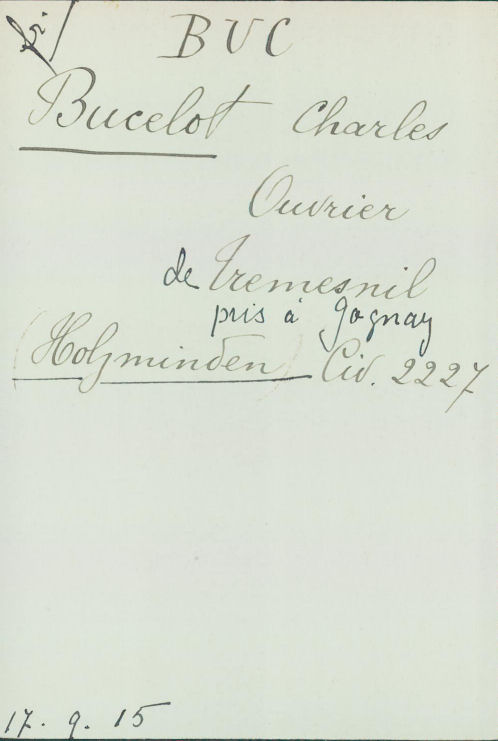 fri
BUC
Bucelot Charles
Ouvrier
de Tremesnil
pris à Gagnay
(Holzminden) Civ. 2227
17. 9. 15